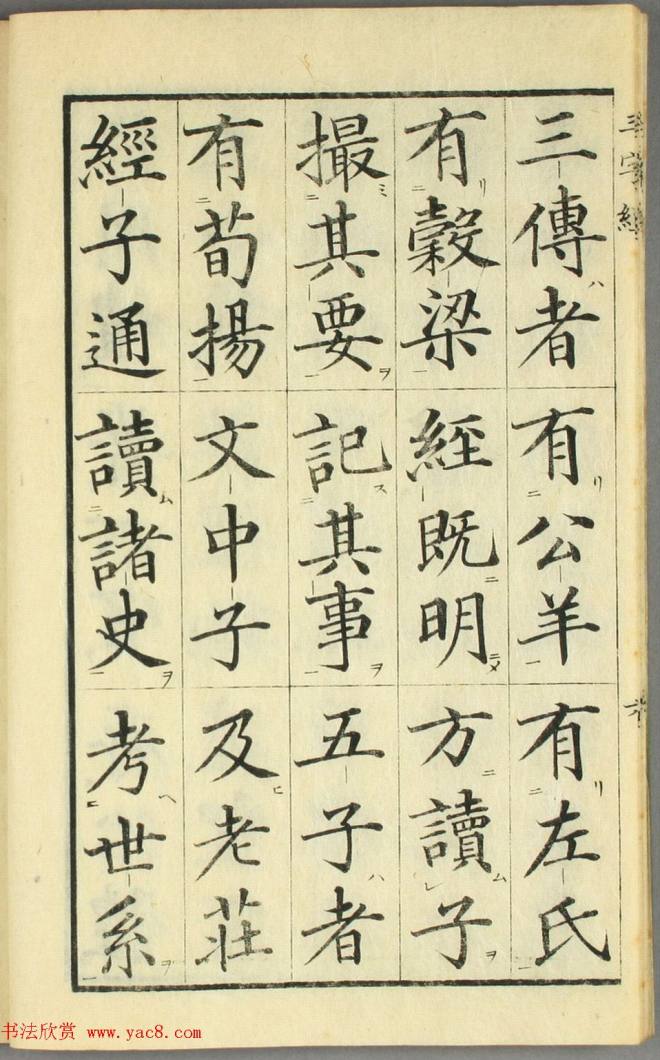 三傳者有公羊有左氏
有穀梁經既明方讀子
撮其要記其事五子者
有荀揚文中子及老莊
經子通讀諸史考世系
三字經
书法欣赏 www.yac8.com